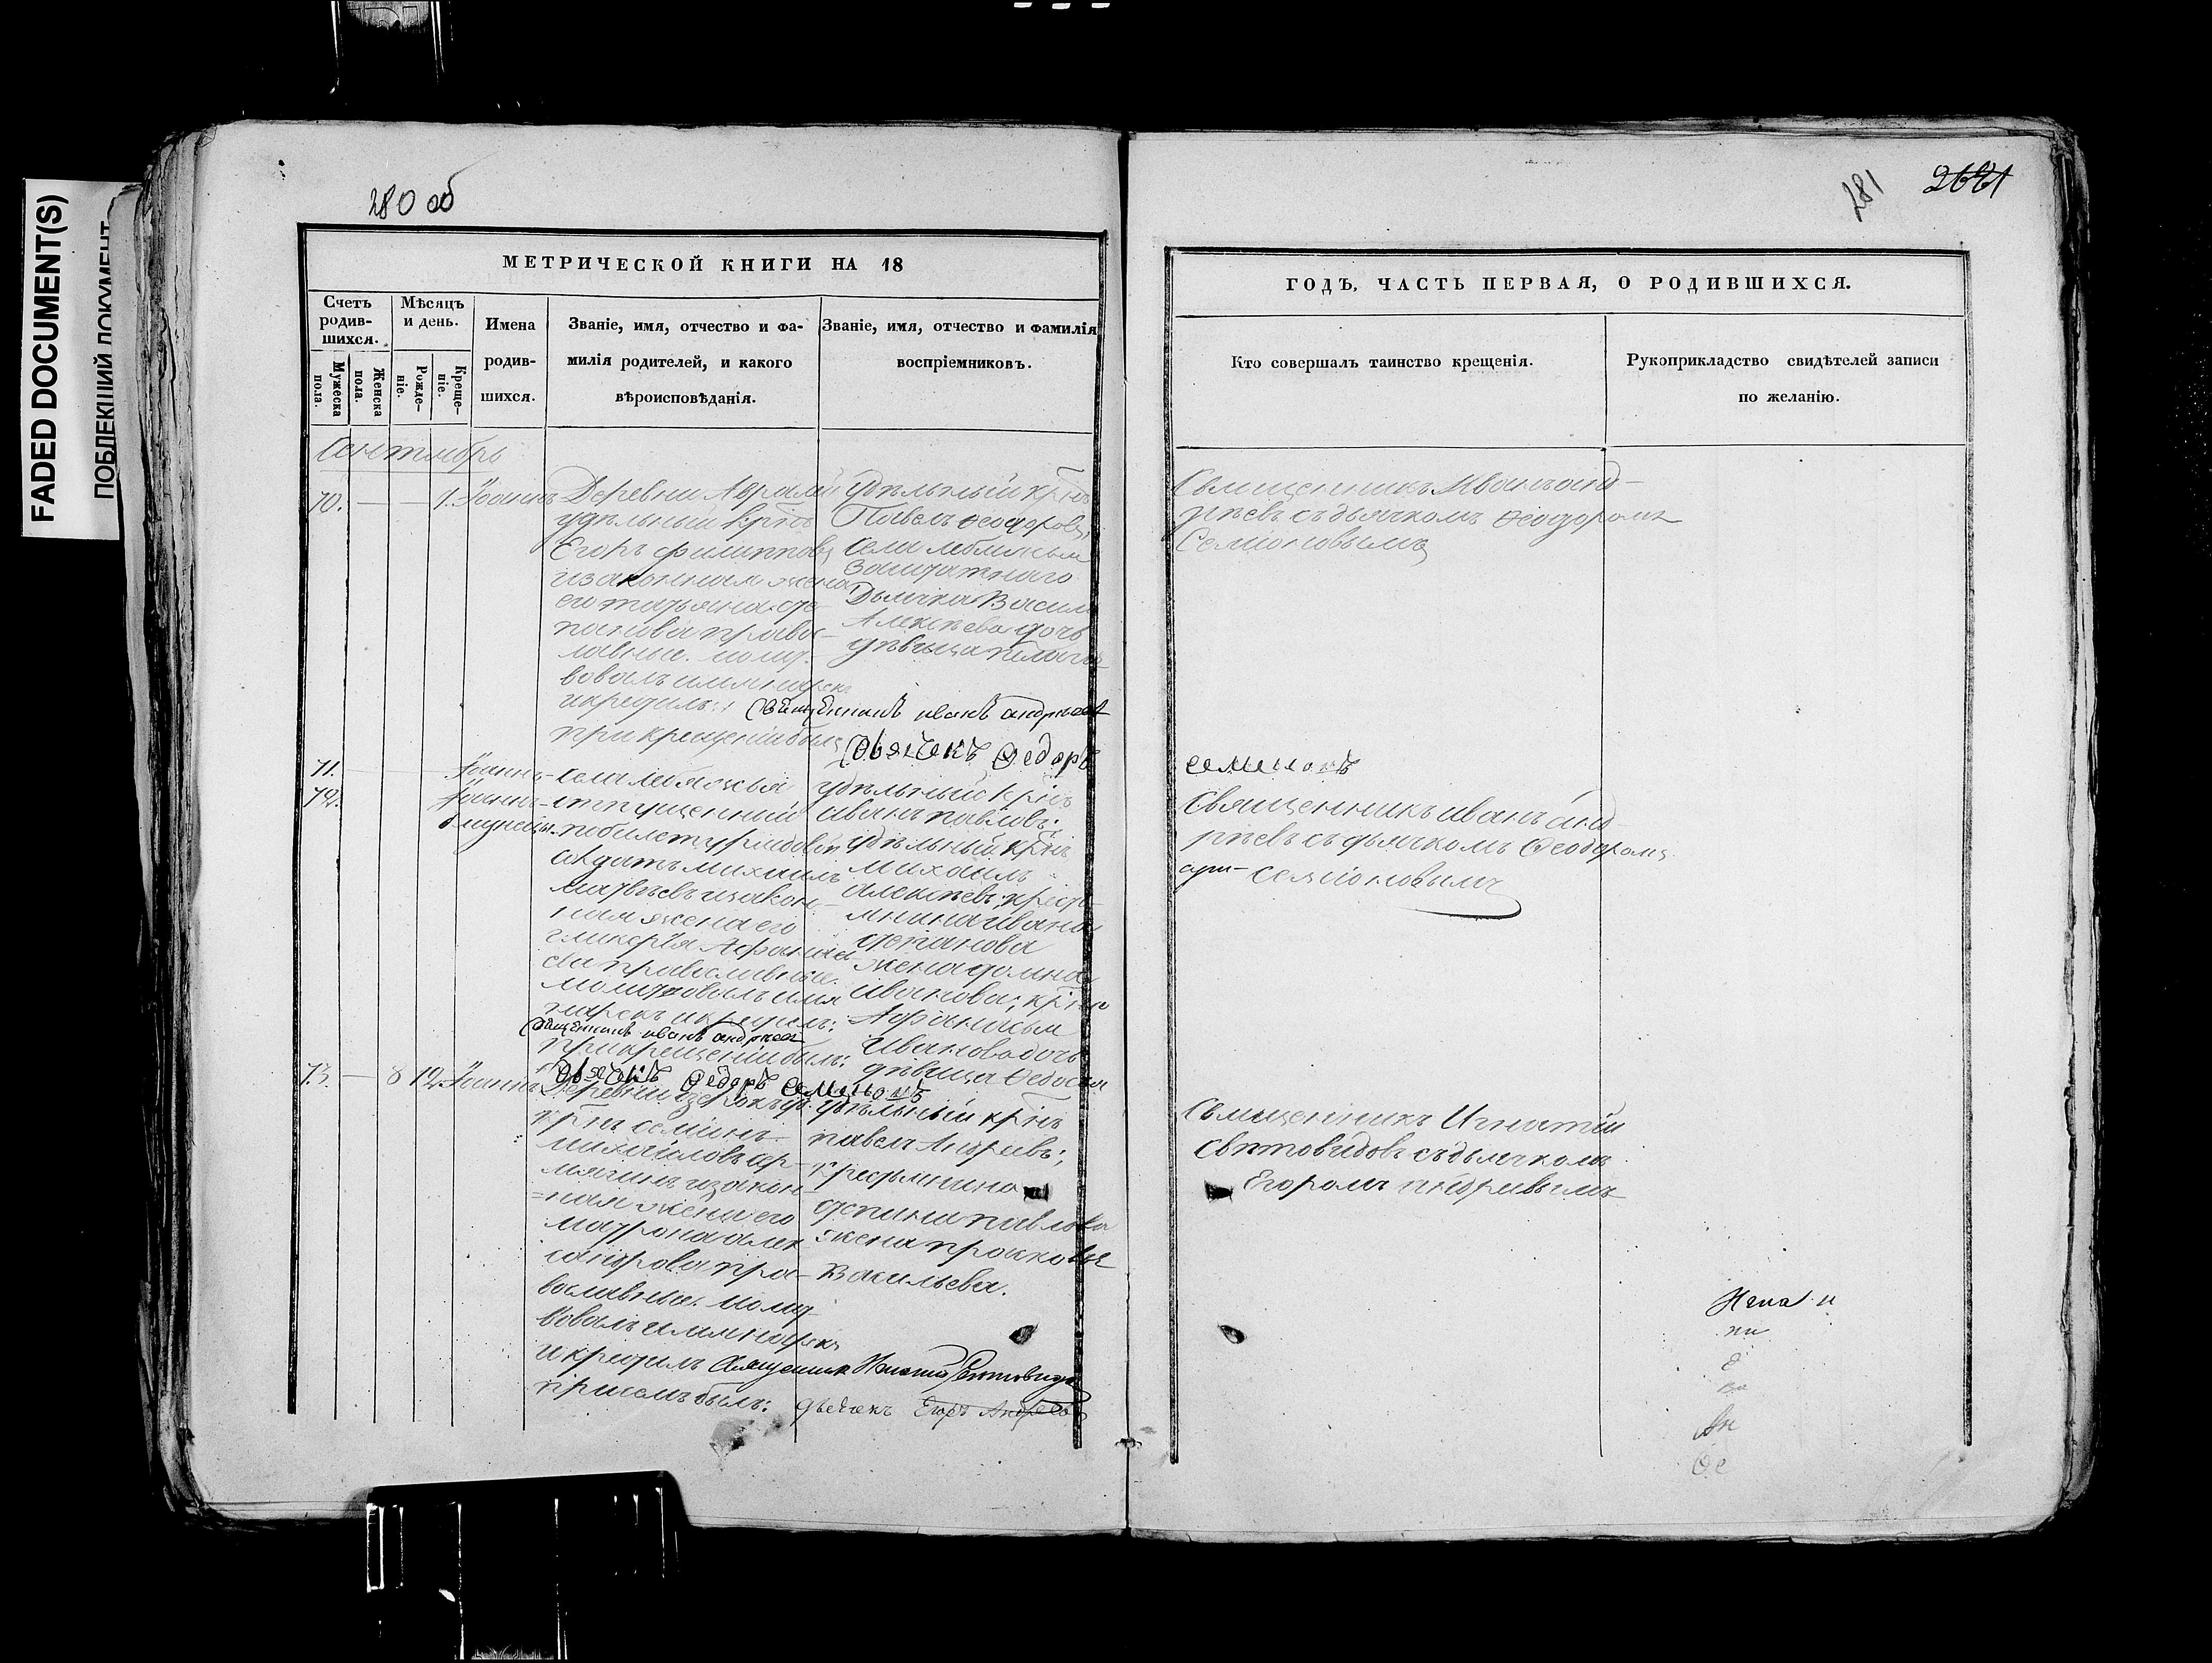 FADED DOCUMENT(S)
ПОБЛЕКШИЙ ДОКУМЕНТ
280 об
МЕТРИЧЕСКОЙ КНИГИ НА 18
Счетъ родив-шихся.
Мужеска пола.
Женска пола.
Мѣсяцъ и день.
Рожде-ніе.
Креще-ніе.
Имена родив-шихся.
Званіе, имя, отчество и фа-
милія родителей, и какого
вѣроисповѣданія.
Званіе, имя, отчество и фамилія
воспріемниковъ.
Сентябрь
70. — — 1. Іоаннъ
Деревни
удѣльный крнъ
Егоръ Филипповъ
и законная жена
его Татьяна Сте-
панова правос-
лавные. молит
вовалъ имя нарекъ
и крестилъ:
Священникъ иванъ андреевъ
при крещеніи былъ
Дьячекъ Федоръ
удѣльный крнъ
Павелъ Феодоровъ,
села
Заштатнаго
Дьячка Васил
Алексѣева дочь
дѣвица Пелаге
71.
72.
Іоаннъ
Іоаннъ
близнецы
села
отпущенный
по билету рядовой
солдатъ михаилъ
матвѣевъ и закон-
ная жена его
гликерія Афанась
ева православные.
молитвовалъ имя
нарекъ и крестилъ:
Священникъ иванъ андреевъ
при крещеніи былъ:
Дьячекъ Федоръ семеновъ
удѣльный крнъ
иванъ павловъ;
удѣльный крнъ
михаилъ
алексѣевъ; кресть
янина ивана
степанова
жена домна
иванова; крнна
Афанасья
Иванова дочь
дѣвица Федосья
73. — 8 12. Іоаннъ
Деревни
крнъ семіонъ
михайловъ ар-
мячинъ и закон-
=ная жена его
матрона алек
сандрова пра-
вославные. молит
вовалъ имя нарекъ
и крестилъ Священникъ Игнатій Свѣтовидовъ
при семъ былъ: дьячекъ Егоръ Андреевъ
удѣльный крнъ
павелъ Андреевъ;
крестьянина
степана павлова
жена прасковья
Васильева.
281
ГОДЪ, ЧАСТЬ ПЕРВАЯ, О РОДИВШИХСЯ.
Кто совершалъ таинство крещенія.
Рукоприкладство свидѣтелей записи
по желанію.
Священникъ Иванъ анд-
рѣевъ съ дьячкомъ Феодоромъ
Семіоновымъ
семеновъ
Священникъ иванъ анд-
рѣевъ съ дьячкомъ Феодоромъ
семіоновымъ
Священникъ Игнатій
Свѣтовидовъ съ дьячкомъ
Егоромъ андреевымъ